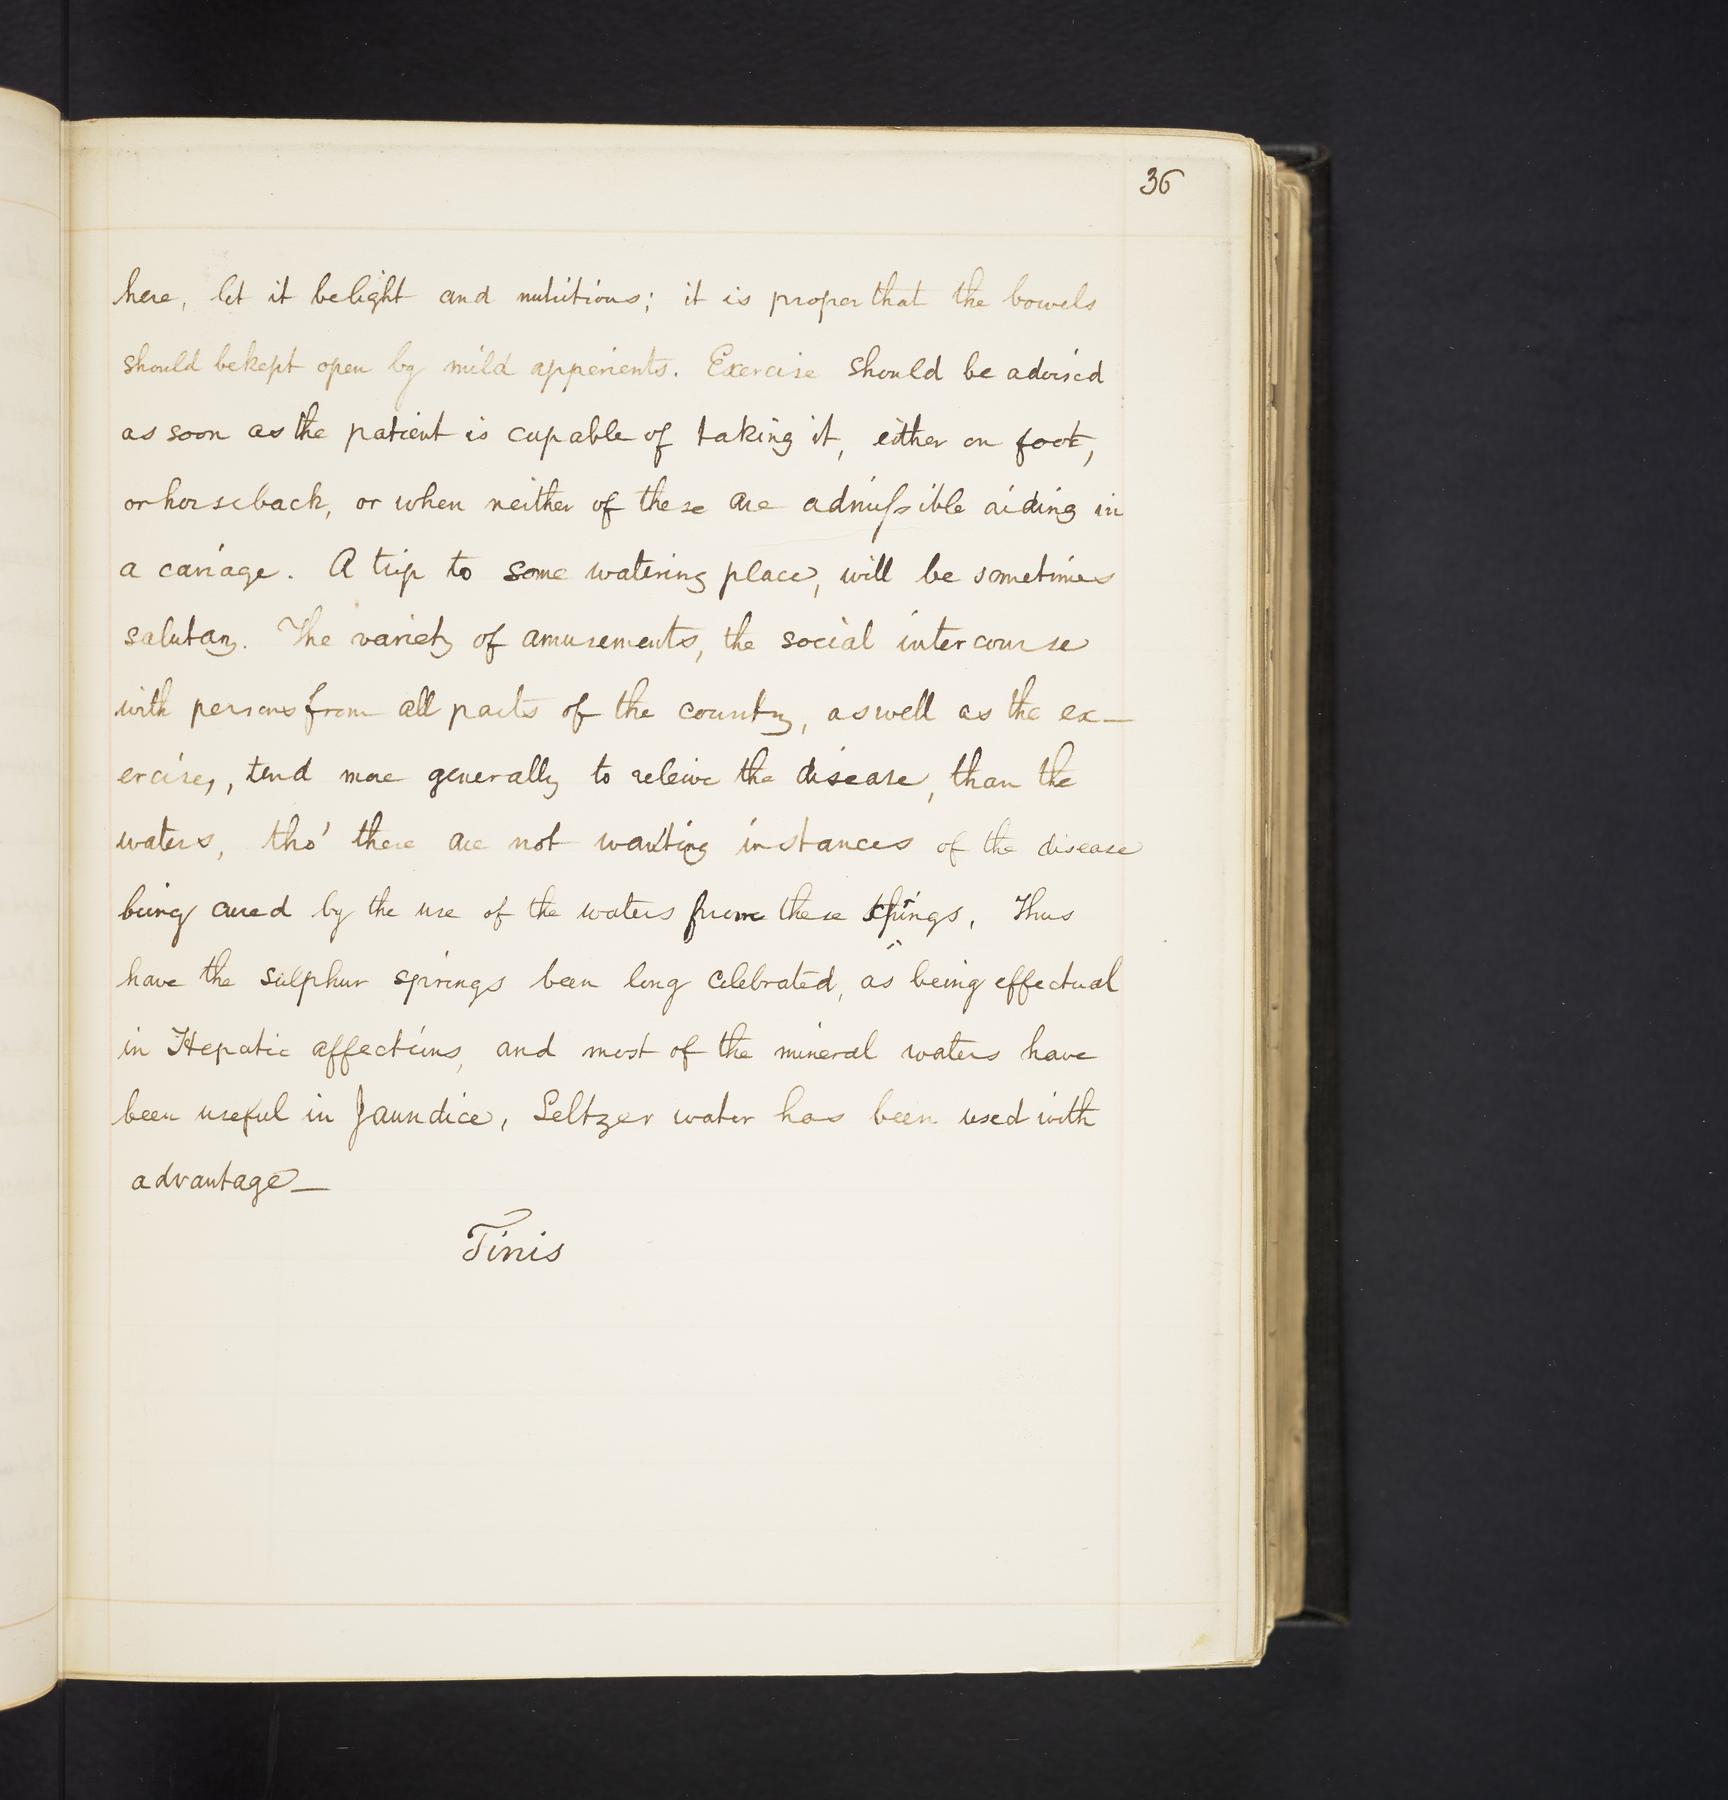 36
here, let it be light and nutritious; it is proper that the bowels
should be kept open by mild apperients. Exercise should be advised
as soon as the patient is capable of taking it, either on foot,
or horseback, or when neither of these are admissible riding in
a cariage. A trip to some watering place, will be sometimes
salutary. The variety of amusements, the social intercourse
with persons from all parts of the country, as well as the ex–
ercise, tend more generally to releive the disease, than the
waters, tho' there are not wanting instances of the disease
being cured by the use of the waters from these springs. Thus
have the sulphur springs been long celebrated, as being effectual
in Hepatic affections, and most of the mineral waters have
been useful in Jaundice, Seltzer water has been used with
advantage–
Finis